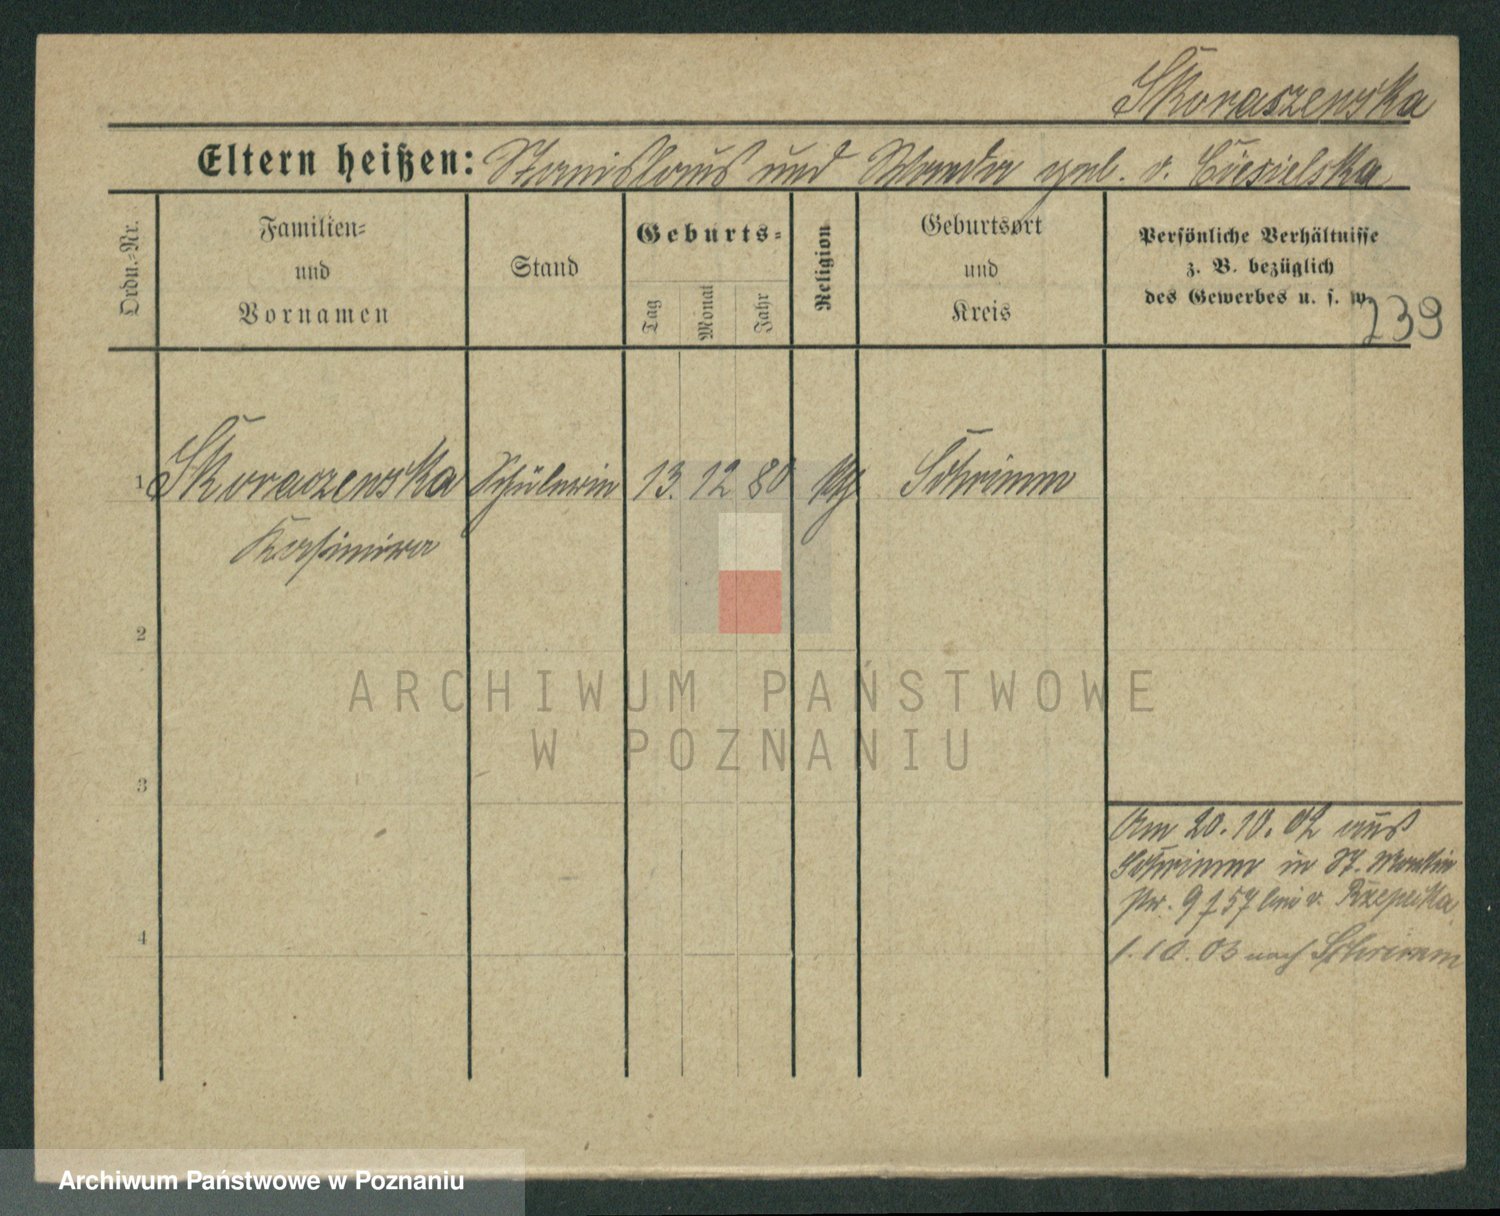 Skoraszewska
Eltern heißen: Stanislaus und Wanda geb. v. Ciesielska
Ordn.-Nr.
Familien-
und
Vornamen
Stand
Geburts-
Tag
Monat
Jahr
Religion
Geburtsort
und
Kreis
Persönliche Verhältnisse
z. B. bezüglich
des Gewerbes u. s. w.
239
1 Skoraczewska Schülerin 13. 12 80 Schrimm
Kasimira
2
ARCHIWUM PAŃSTWOWE
W POZNANIU
3
Am 20.10.02 aus
Schrimm in St. Martin
Nr. 9 57 bei v. Rzepecka
4
1.10.03 nach Schrimm
Archiwum Państwowe w Poznaniu